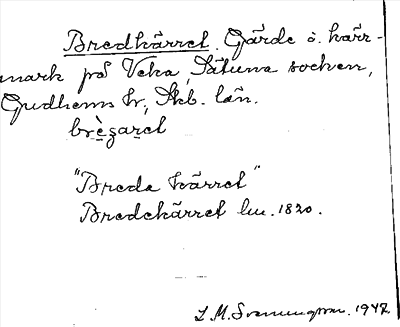 Bredhärret. Gärde o. kärr-
mark på Veka, Sätuna socken,
Gudhems hr, Skb. län.
brèzaret
"Breda Kärret"
Bredekärret lm. 1820.
L. M. Svenungsson. 1942.